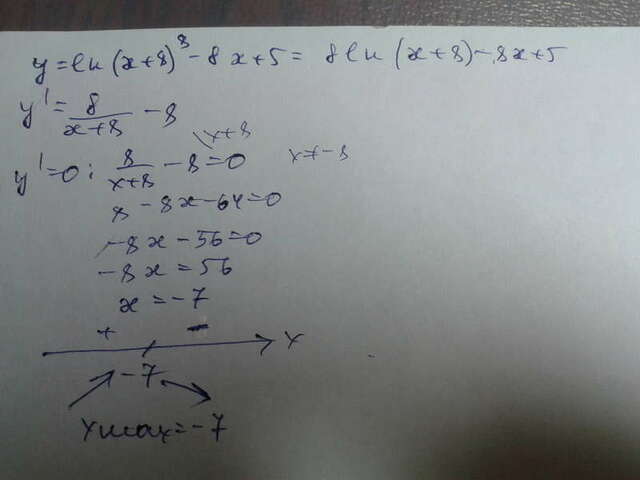 y = ln (x+8)⁸ - 8x+5 = 8 ln (x+8) - 8x+5
y' = 8/(x+8) - 8
y'=0: 8/(x+8) - 8 = 0 \x+8 x≠-8
8 - 8x - 64 = 0
-8x - 56 = 0
-8x = 56
x = -7
+ - x
-7
xmax = -7